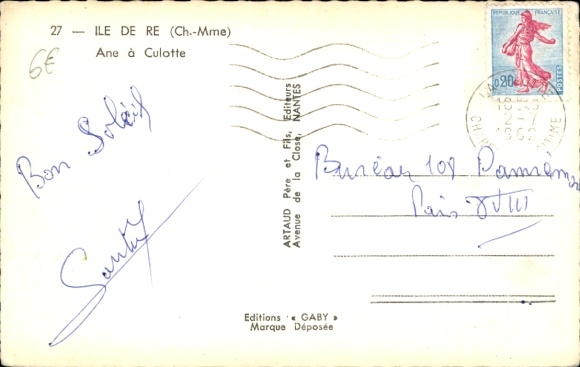 27 — ILE DE RE (Ch.-Mme)
Ane à Culotte
6€
Bon Soleil
ARTAUD Père et Fils, Editeurs
Avenue de la Close, NANTES
REPUBLIQUE FRANÇAISE
0,20
POSTES
Bureau 108
Paris XVIII
Editions « GABY »
Marque Déposée